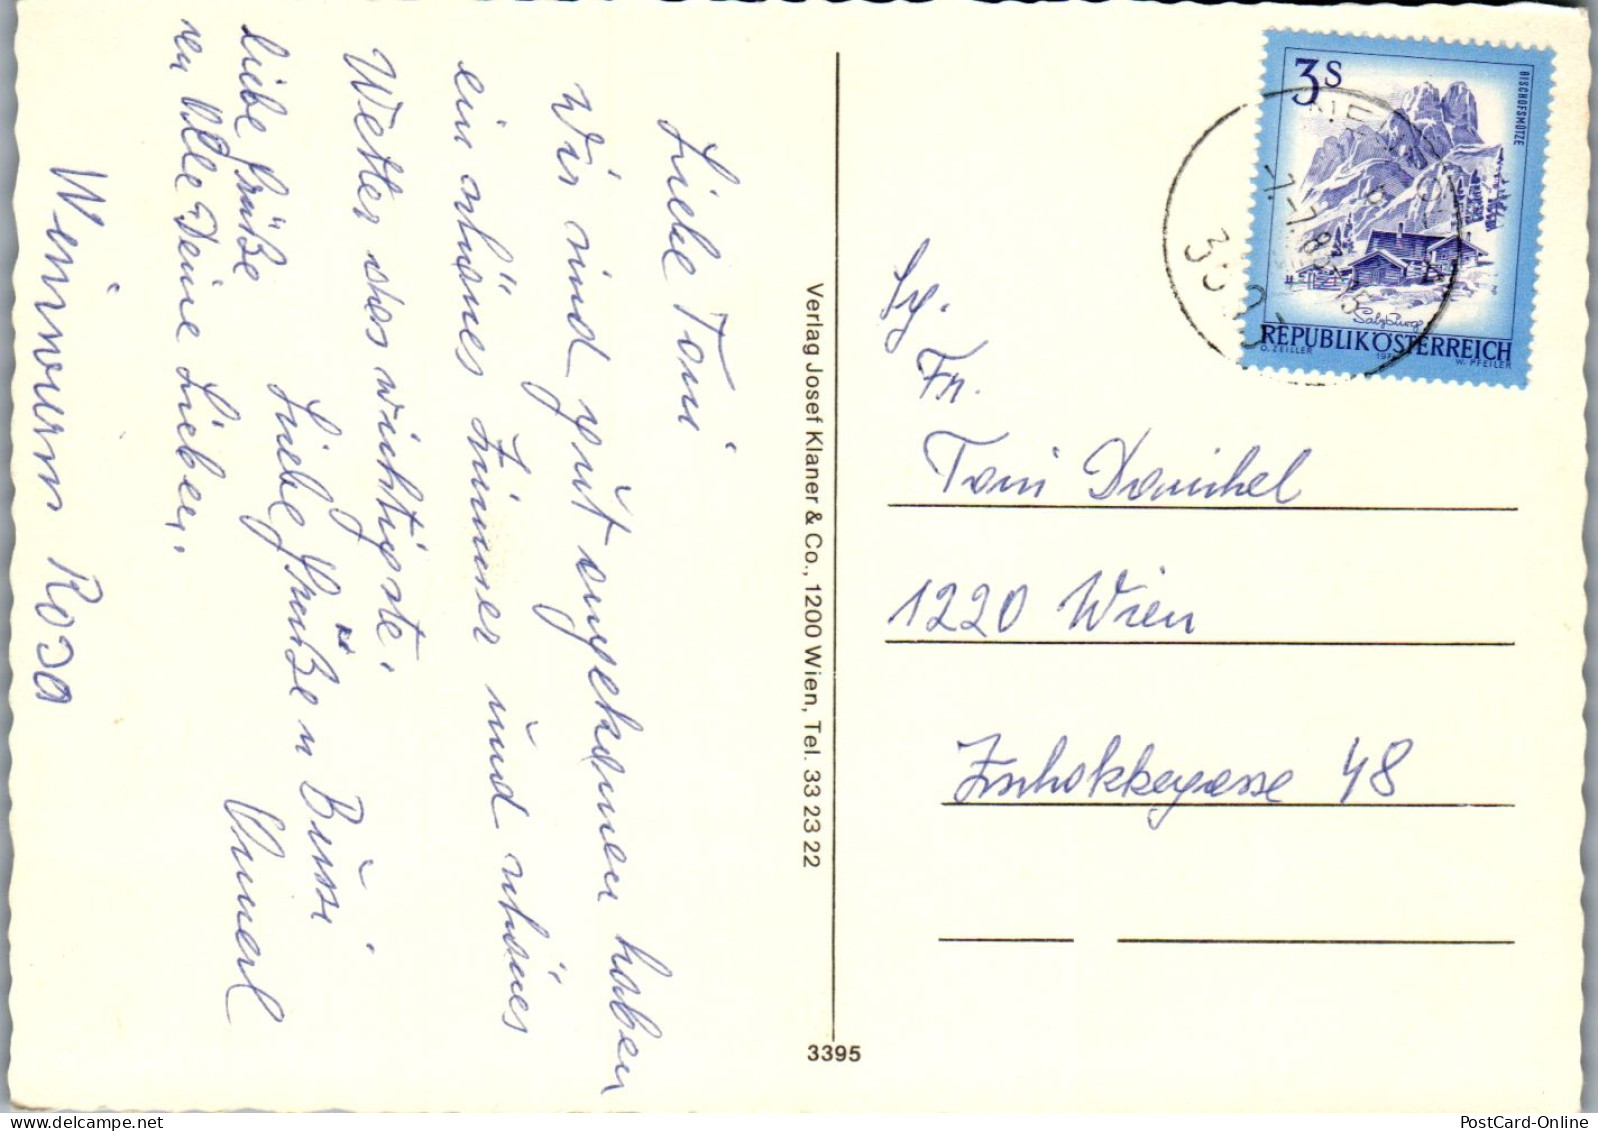 Liebe Toni
Wir sind gut angekommen haben
ein schönes Zimmer und schönes
Wetter das wichtigste.
Liebe Grüße n Bussi
Annerl
liebe Grüße
an Alle Deine Lieben.
Rosa
Verlag Josef Klaner & Co., 1200 Wien, Tel. 33 23 22
3395
3S
BISCHOFSMÜTZE
Salzburg
REPUBLIK ÖSTERREICH
O. ZEILLER
W. PFEILER
Fr.
Toni
1220 Wien
Zschokkegasse 48
PostCard-Online